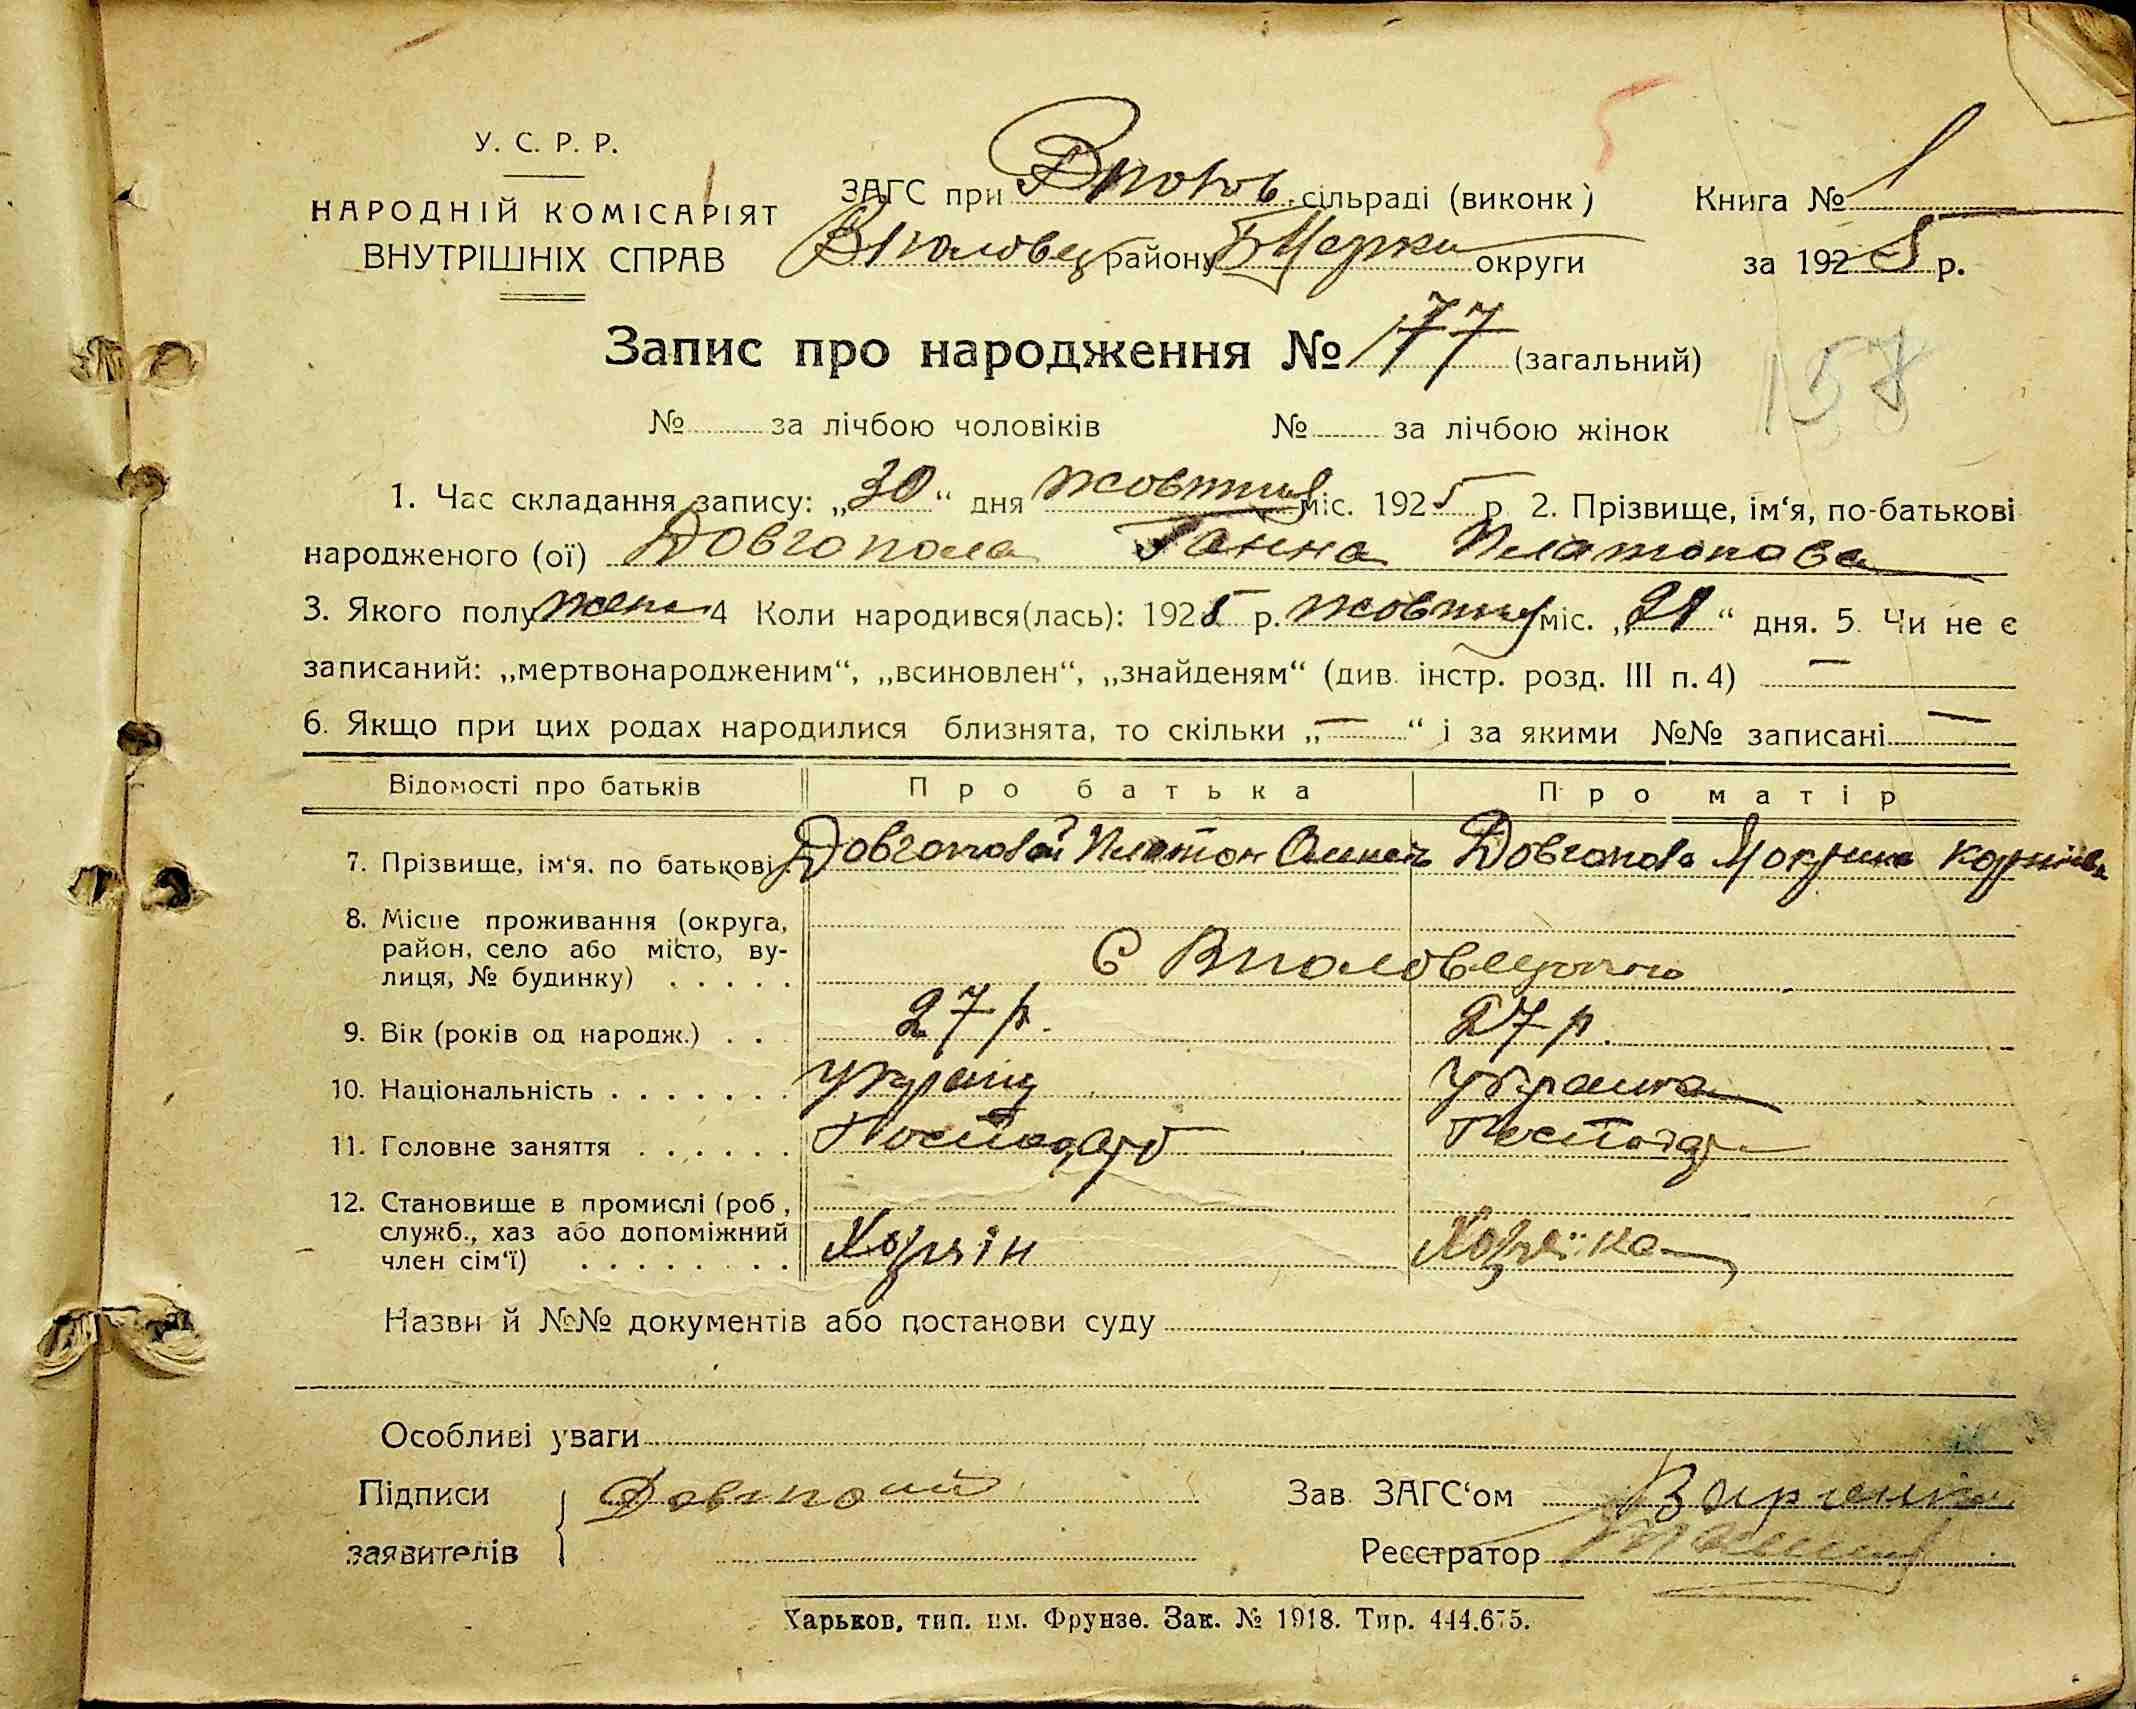 У. С. Р. Р.
НАРОДНІЙ КОМІСАРІЯТ
ВНУТРІШНІХ СПРАВ
ЗАГС при сільраді (виконк)
району Б Церки округи
Книга № 1
за 1925 р.
Запис про народження № 177 (загальний)
157
№ за лічбою чоловіків № за лічбою жінок
1. Час складання запису: „30“ дня жовтня міс. 1925 р 2. Прізвище, ім‘я, по-батькові
народженого (ої) Довгопола Ганна Платонова
3. Якого полу жен 4 Коли народився(лась): 1925 р. жовтня міс. „21“ дня. 5. Чи не є
записаний: „мертвонародженим“, „всиновлен“, „знайденям“ (див. інстр. розд. III п. 4) —
6. Якщо при цих родах народилися близнята, то скільки „—“ і за якими №№ записані —
Відомості про батьків Про батька Про матір
7. Прізвище, ім‘я. по батькові Довгополий Платон Довгопола Мокрина
8. Місце проживання (округа,
район, село або місто, ву-
лиця, № будинку) . . . . . С
9. Вік (років од народж.) . . 27 р. 27 р.
10. Національність . . . . . . . Україн Українка
11. Головне заняття . . . . . . Господар Господар
12. Становище в промислі (роб,
служб., хаз або допоміжний
член сім‘ї) . . . . . . . . Хозяїн Хозяїка
Назви й №№ документів або постанови суду
Особливі уваги
Підписи Зав. ЗАГС‘ом
заявителів Реєстратор
Харьков, тип. им. Фрунзе. Зак. № 1918. Тир. 444.675.